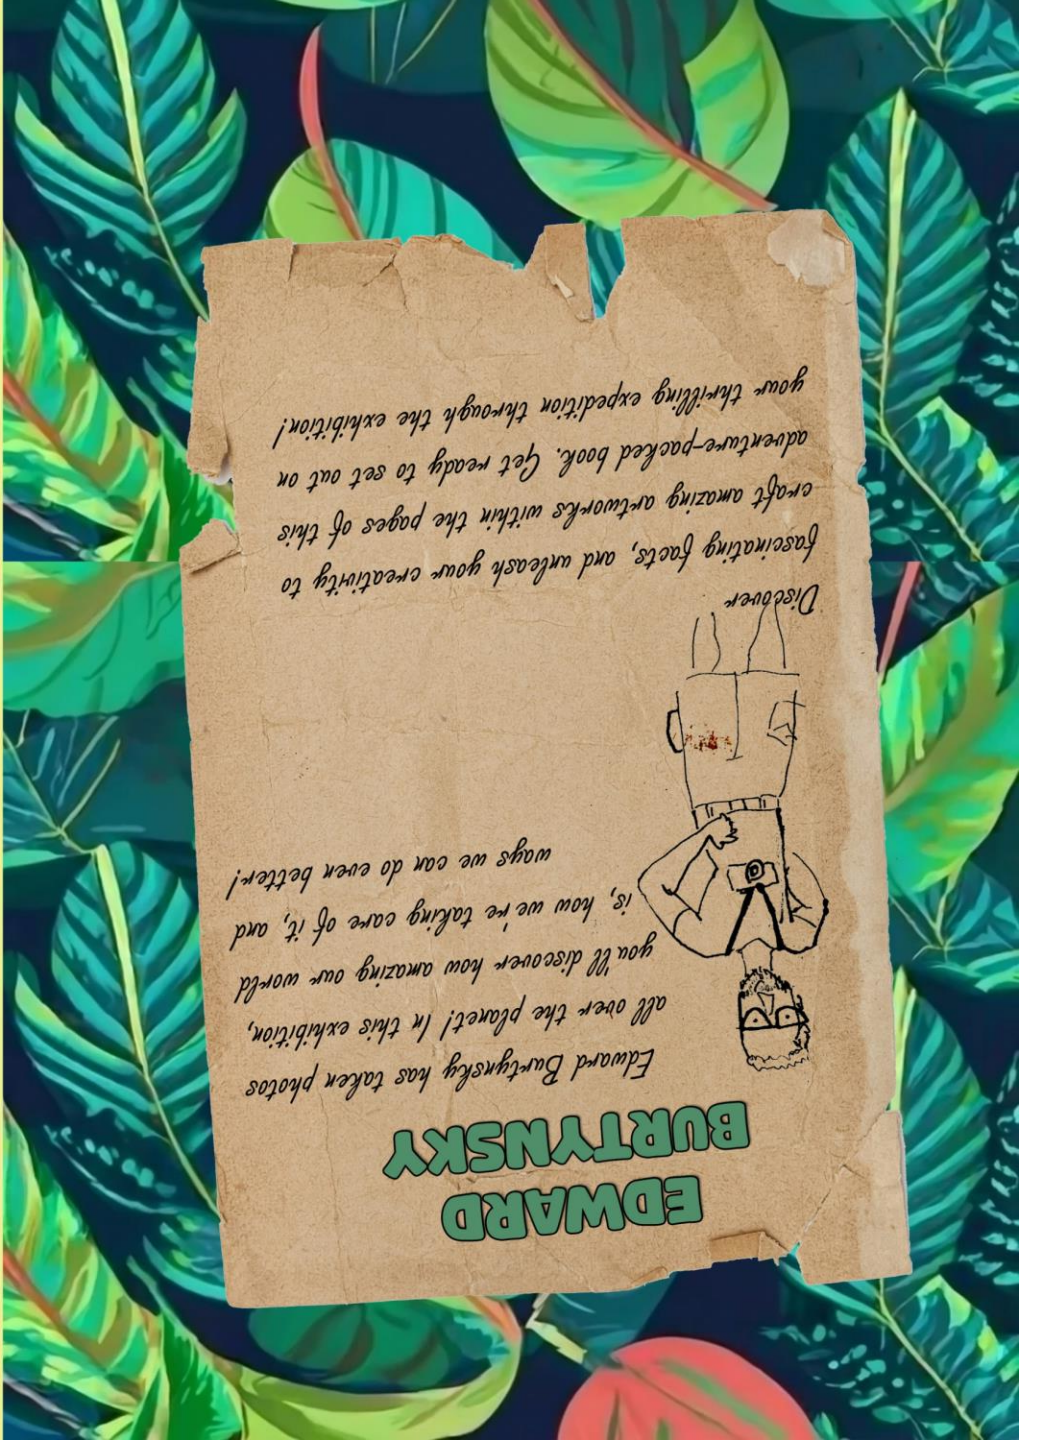 EDWARD
BURTYNSKY
Edward Burtynsky has taken photos
all over the planet! In this exhibition,
you'll discover how amazing our world
is, how we're taking care of it, and
ways we can do even better!
Discover
fascinating facts, and unleash your creativity to
craft amazing artworks within the pages of this
adventure-packed book. Get ready to set out on
your thrilling expedition through the exhibition!